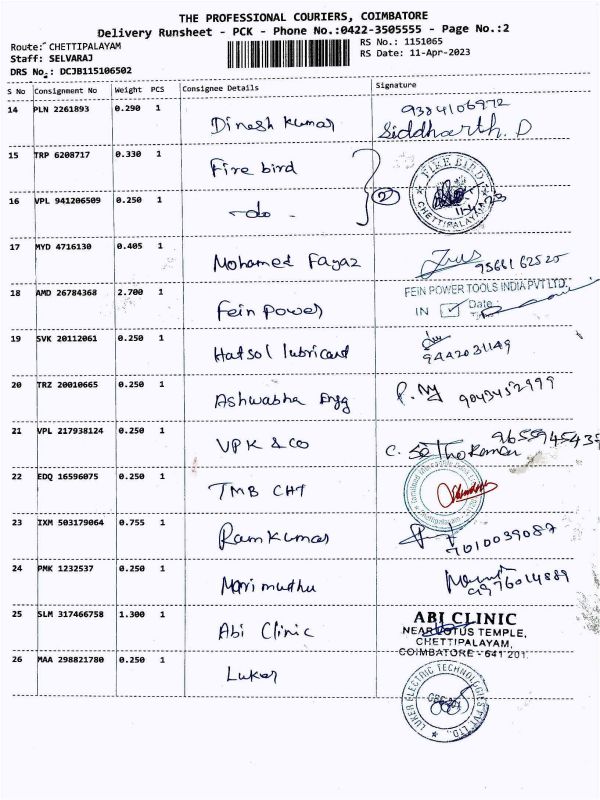 THE PROFESSIONAL COURIERS, COIMBATORE
Delivery Runsheet - PCK - Phone No.:0422-3505555 - Page No.:2
Route: CHETTIPALAYAM RS No.: 1151065
Staff: SELVARAJ RS Date: 11-Apr-2023
DRS No.: DCJB115106502
S No Consignment No Weight PCS Consignee Details Signature
14 PLN 2261893 0.290 1 Dinesh Kumar 9384106972
Siddharth. D
15 TRP 6208717 0.330 1 Fire bird FIRE BIRD
16 VPL 941206509 0.250 1 -do- 2 CHETTIPALAYAM
17 MYD 4716130 0.405 1 Mohamed Fayaz 9566162525
18 AMD 26784368 2.700 1 Fein Power FEIN POWER TOOLS INDIA PVT LTD.,
IN Date :
19 SVK 20112061 0.250 1 Hatsol lubricant 9442031149
20 TRZ 20010665 0.250 1 Ashwabha Engg 9043452999
21 VPL 217938124 0.250 1 VPK & CO C. 965594543
22 EDQ 16596075 0.250 1 TMB CHT
23 IXM 503179064 0.755 1 Ramkumar 7010039087
24 PMK 1232537 0.250 1 Marimuthu
25 SLM 317466758 1.300 1 Abi Clinic ABI CLINIC
NEAR LOTUS TEMPLE,
CHETTIPALAYAM,
COIMBATORE - 641 201.
26 MAA 298821780 0.250 1 Luker LUKER ELECTRIC TECHNOLOGIES PVT. LTD.,